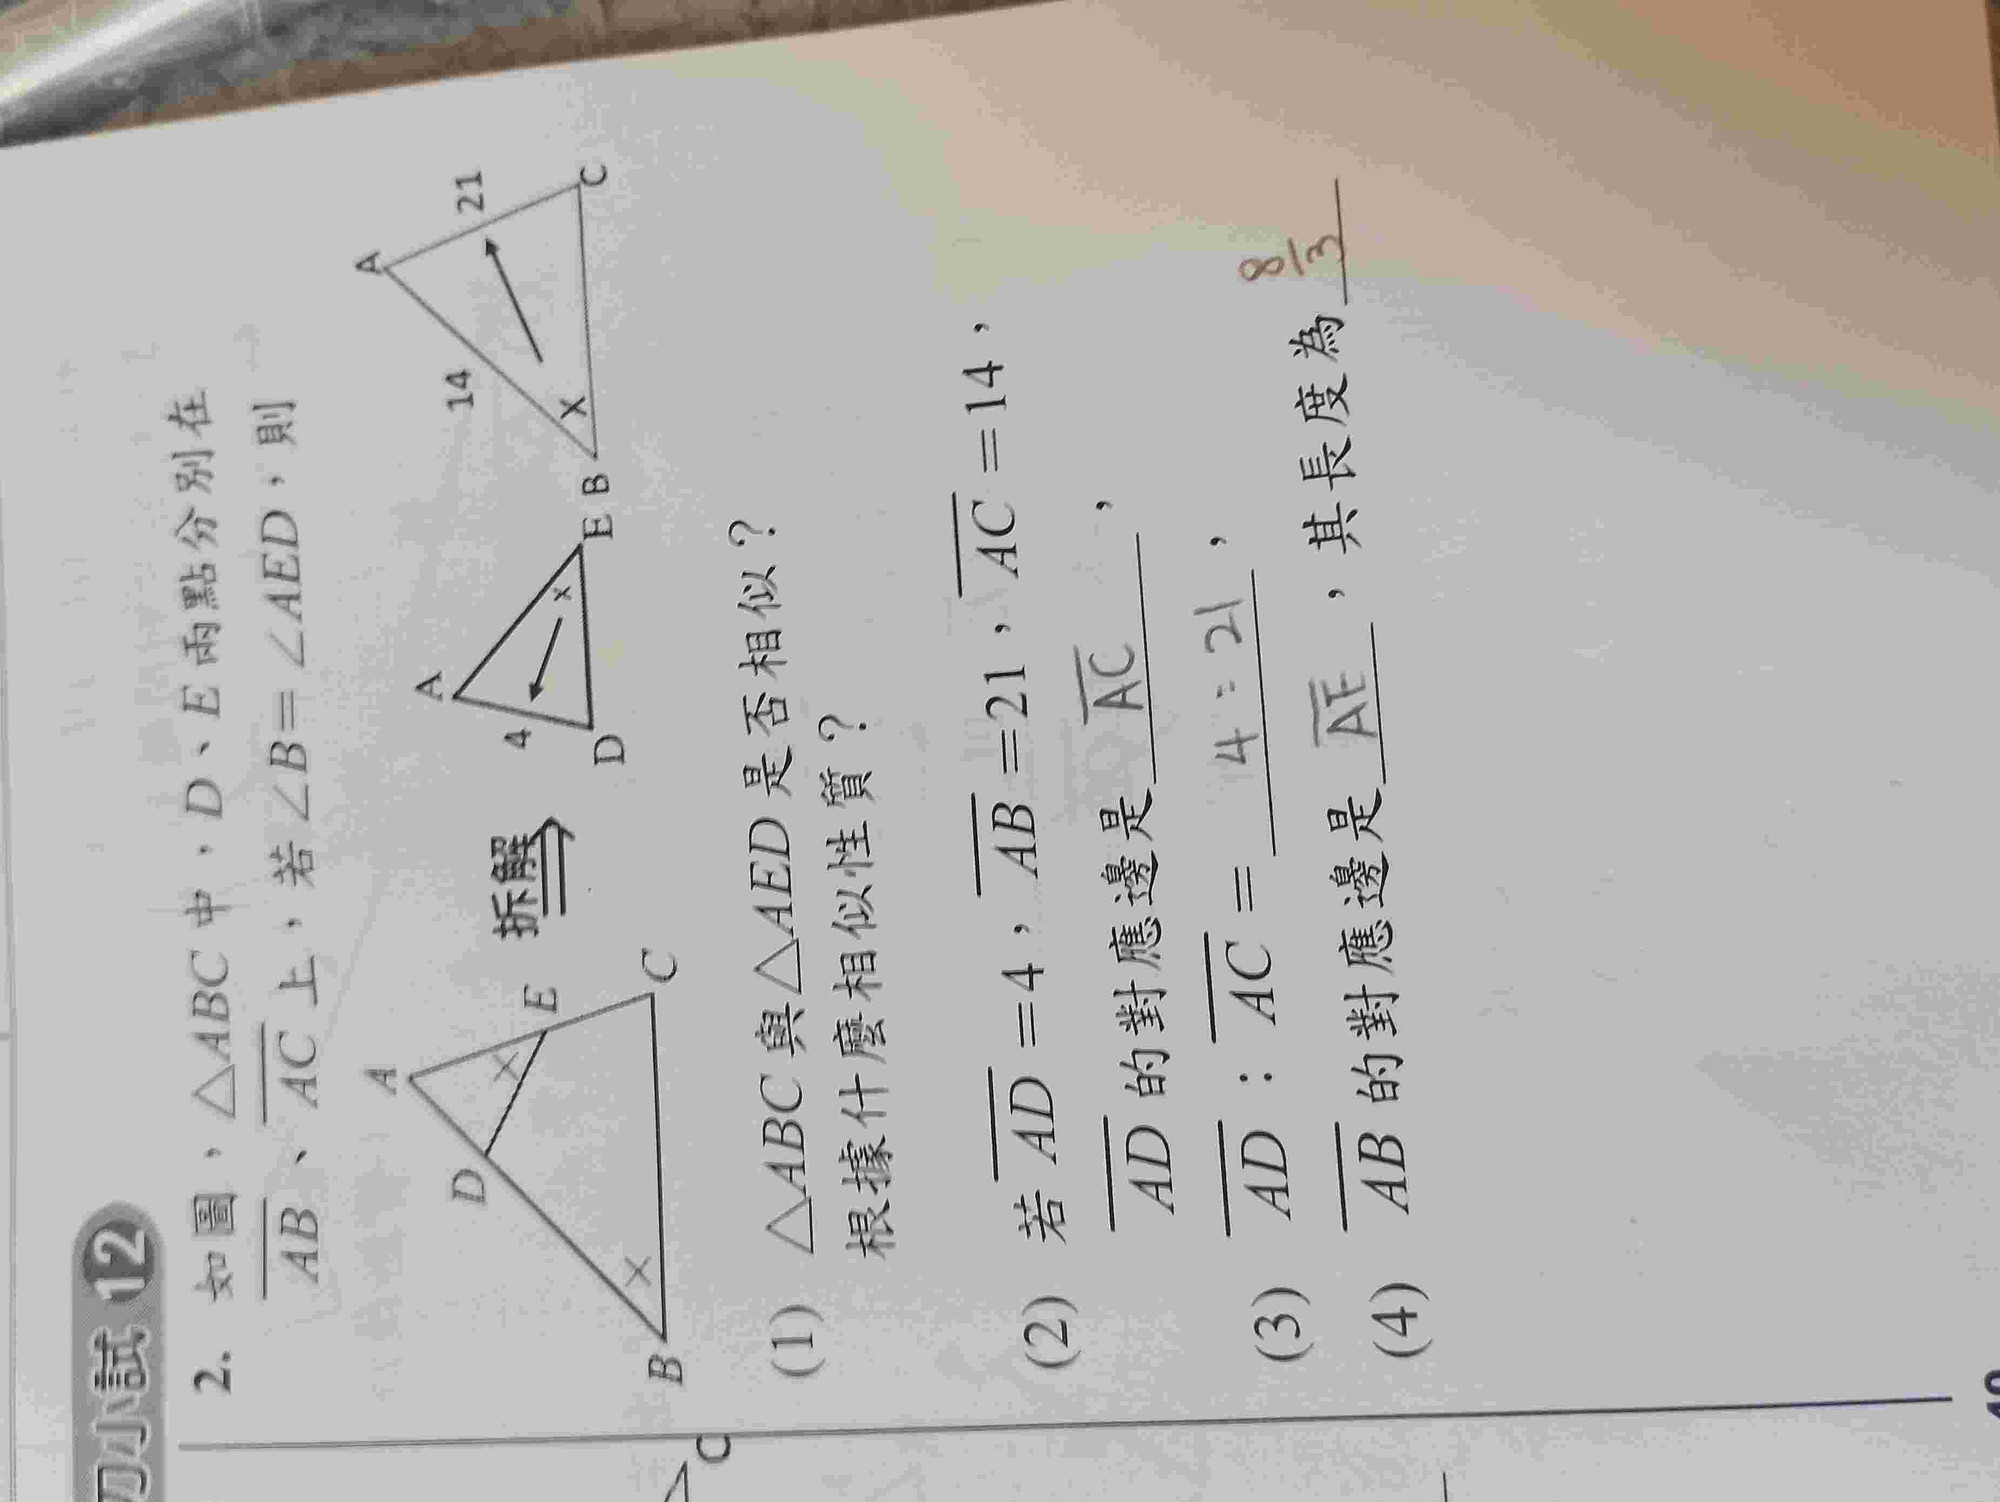 刀小試 12
2. 如圖，△ABC 中，D、E 兩點分別在
AB、AC 上，若∠B＝∠AED，則
A
D
E
B
C
拆解
A
4
D
E
A
14
21
B
C
(1) △ABC 與△AED 是否相似？
根據什麼相似性質？
(2) 若 AD＝4，AB＝21，AC＝14，
AD 的對應邊是 AC ，
(3) AD：AC＝ 4：21 ，
(4) AB 的對應邊是 AE ，其長度為 8/3
C